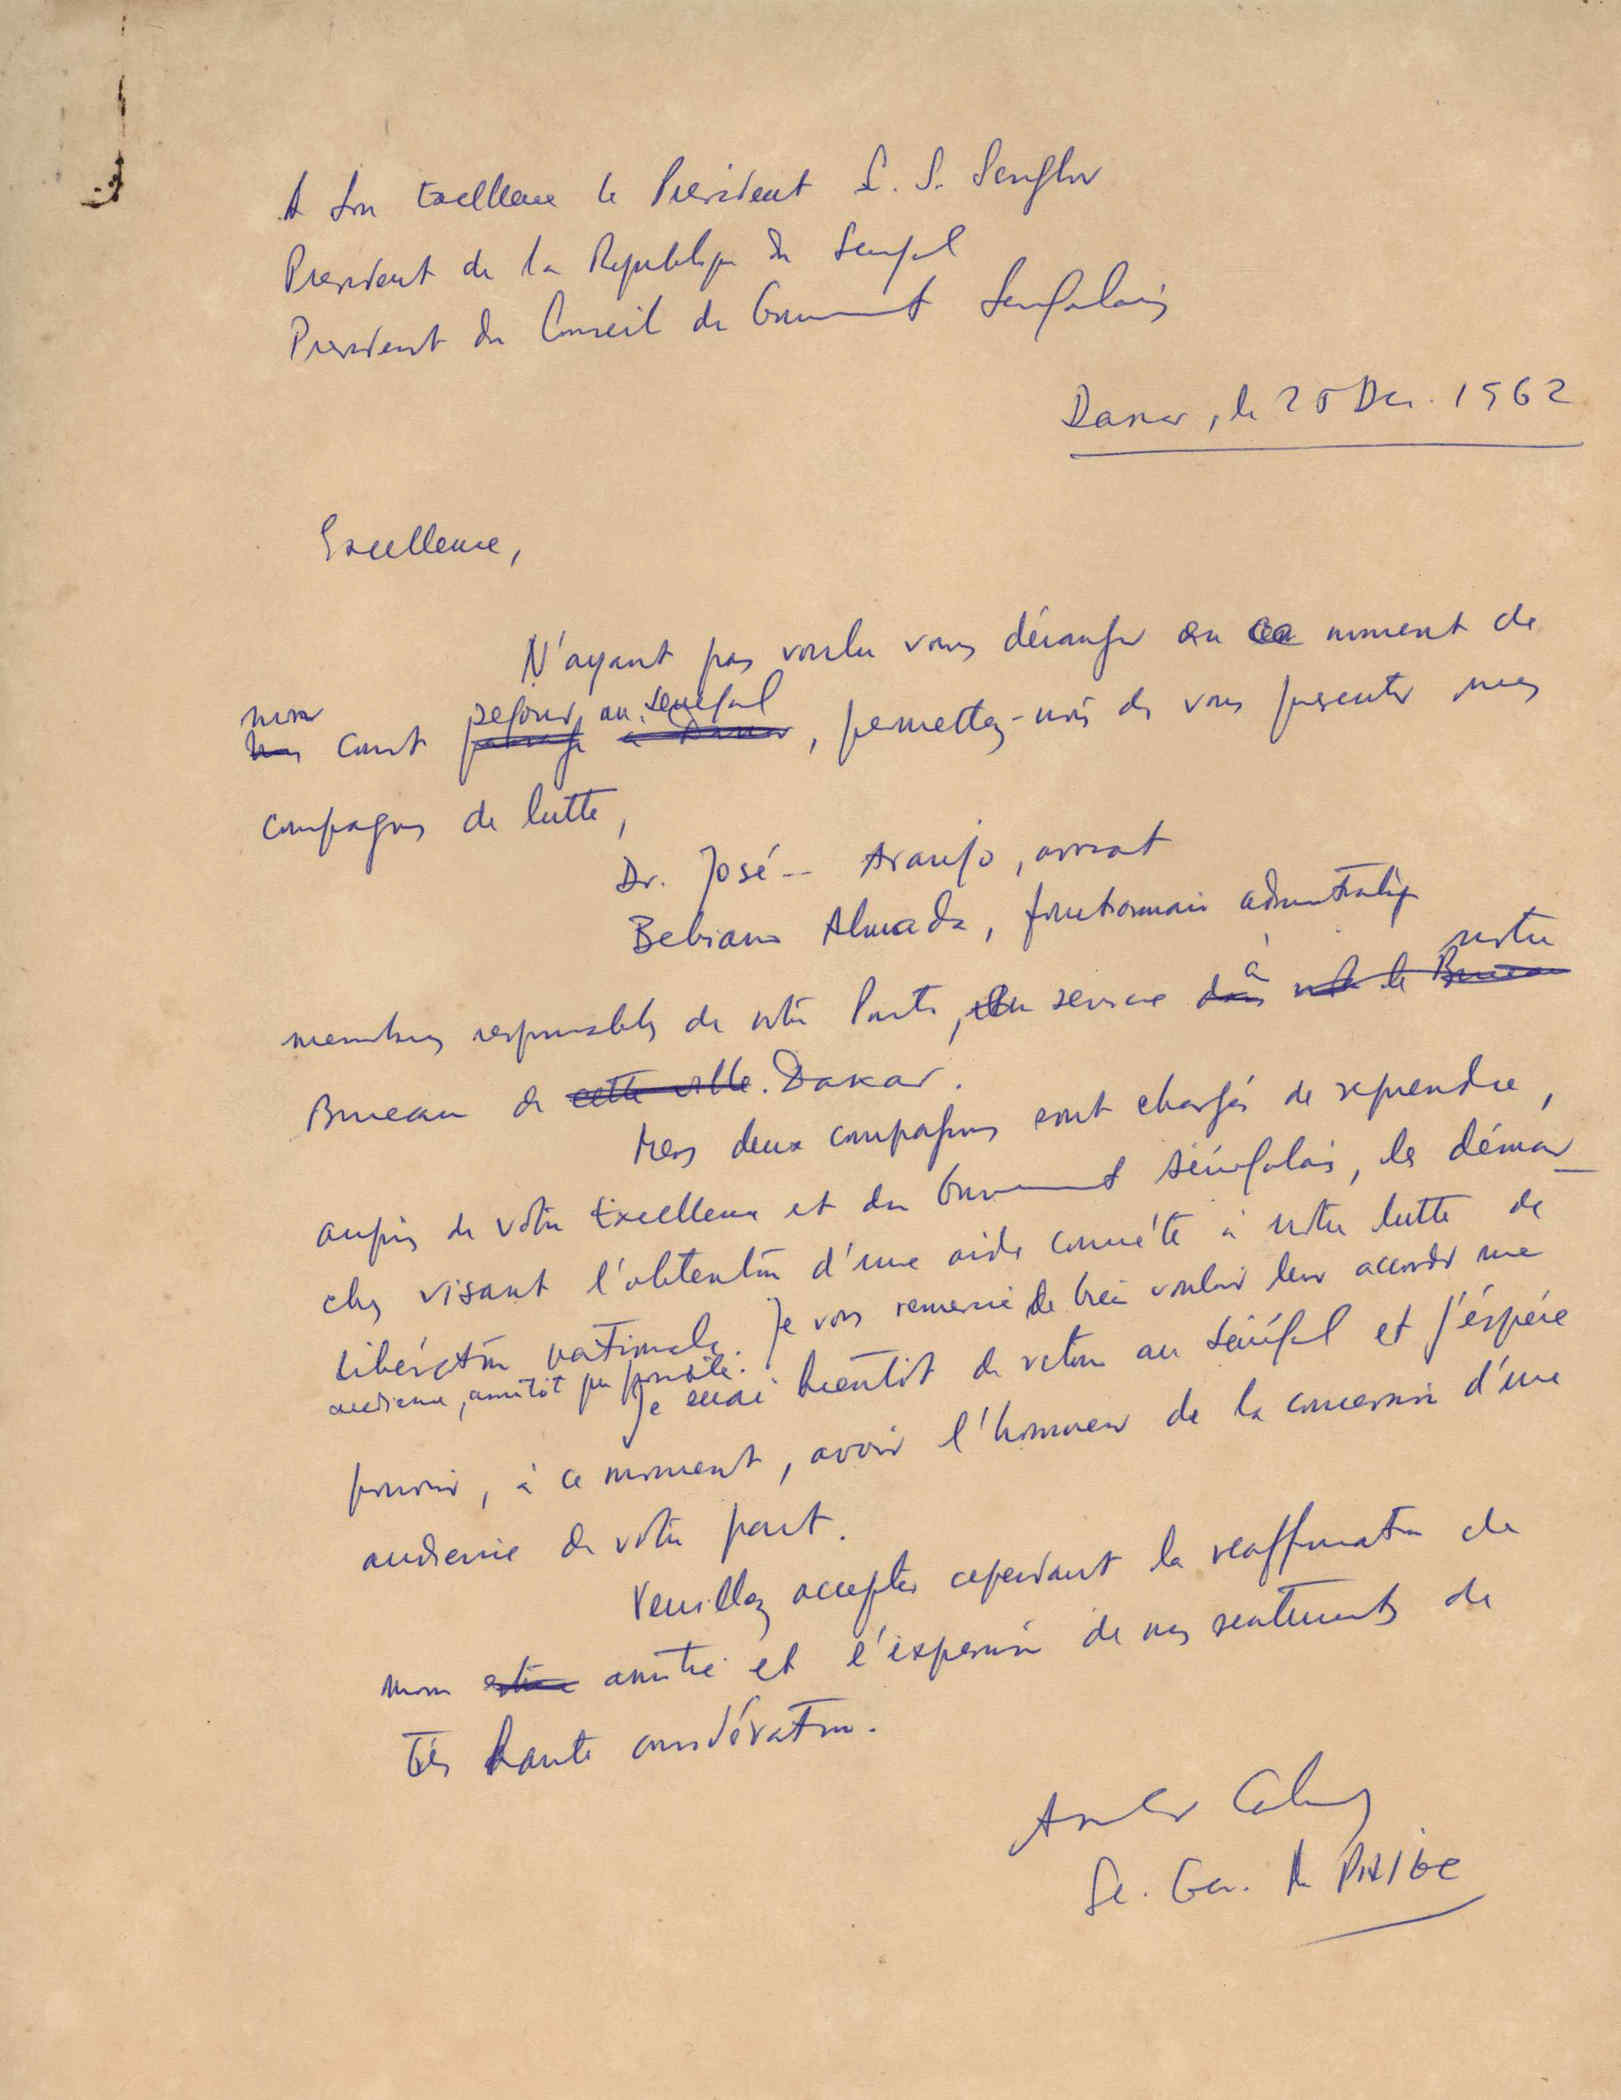 A Son Excellence le President L. S. Senghor
President de la Republique du Senegal
President du Conseil du Gouvernement Senegalais
Dakar, le 20 Dec. 1962
Excellence,
N'ayant pas voulu vous déranger au moment de
mon court sejour au Senegal, permettez-moi de vous presenter mes
compagnons de lutte,
Dr. José -- Araujo, avocat
Bebiano Almada, fonctionnaire administratif
membres responsables de notre Parti, en service à notre
Bureau de cette ville. Dakar.
Mes deux compagnons sont chargés de reprendre,
auprès de votre Excellence et du Gouvernement Sénégalais, les démar-
ches visant l'obtention d'une aide concrète à notre lutte de
libération nationale. Je vous remercie de bien vouloir leur accorder une
audience, aussitôt que possible. Je serai bientôt de retour au Sénégal et j'éspére
pouvoir, à ce moment, avoir l'honneur de la concession d'une
audience de votre part.
Veuillez accepter cependant la reaffirmation de
mon amitié et l'expression de mes sentiments de
très haute considération.
Amilcar Cabral
Se. Gen. du PAIGC